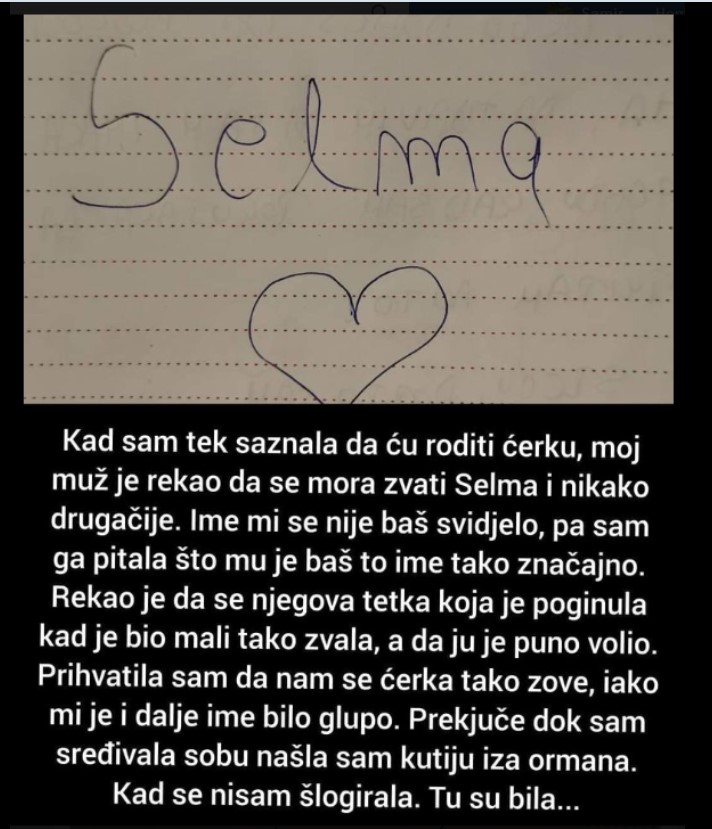 Selma
Kad sam tek saznala da ću roditi ćerku, moj
muž je rekao da se mora zvati Selma i nikako
drugačije. Ime mi se nije baš svidjelo, pa sam
ga pitala što mu je baš to ime tako značajno.
Rekao je da se njegova tetka koja je poginula
kad je bio mali tako zvala, a da ju je puno volio.
Prihvatila sam da nam se ćerka tako zove, iako
mi je i dalje ime bilo glupo. Prekjuče dok sam
sređivala sobu našla sam kutiju iza ormana.
Kad se nisam šlogirala. Tu su bila...